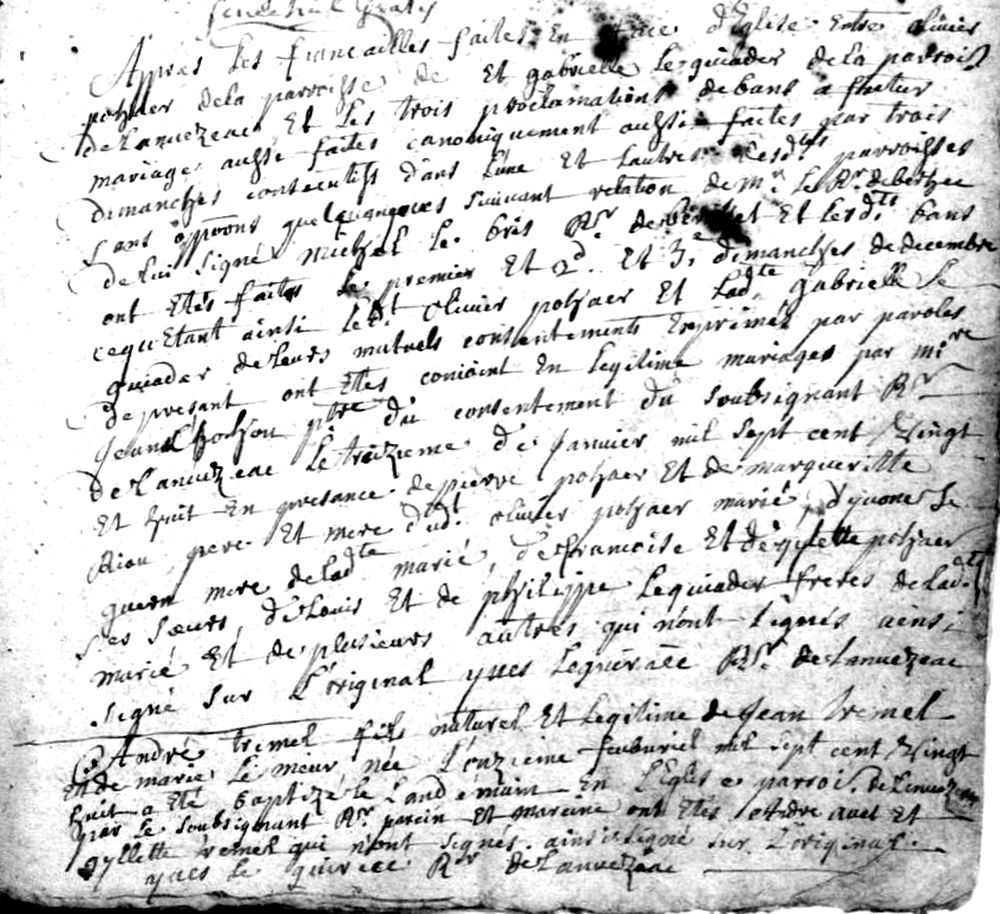 Appres les francailles faites En face d'Eglise Entre olivier
pohaer dela parroisse de Et gabrielle le quiader dela parroiss
de Lanvezeac Et les trois proclamations de bans a futur
mariage aussi faites canoniquement aussi faites par trois
dimanches consecutifs dans l'une Et l'autre desdtes parroisses
sans opp̃ons quelquonques suivant relation de Mr le Rr de berhet
de lui signé Michel le bris Rr de berhet Et lesdts bans
ont Etés faites le premier Et 2d. Et 3e dimanches de decembre
ce qu'Etant ainsi ledt olivier pohaer Et ladte gabrielle le
quiader de leurs mutuels consentements Exprimés par paroles
de presant ont Etés conioint En legitime mariage par mire
Jean ptre du consentement du soubsignant Rr
de Lanvezeac le treizieme de Janvier mil sept cent Vingt
Et huit En presance de pierre pohaer Et de marguerite
Riou pere Et mere dudt olivier pohaer marié, d'yvone le
guern mere de ladte marié, de francoise Et de gilette pohaer
ses soeurs, de Louis Et de philippe le quiader freres de ladte
marié Et de plusieurs autres qui n'ont signés ainsi
signé sur l'original yves le Rr. de Lanvezeac
André tremel fils naturel Et legitime de Jean tremel
Et de marie le meur née l'onzieme feuvriel mil sept cent Vingt
huit a Eté baptizé le landemain En l'Eglise parroi. de Lanvezeac
par le soubsignant Rr. parein Et mareine ont Etés Et
gyllette tremel qui n'ont signés. ainsi signé sur l'original.
yves le Rr de Lanvezeac